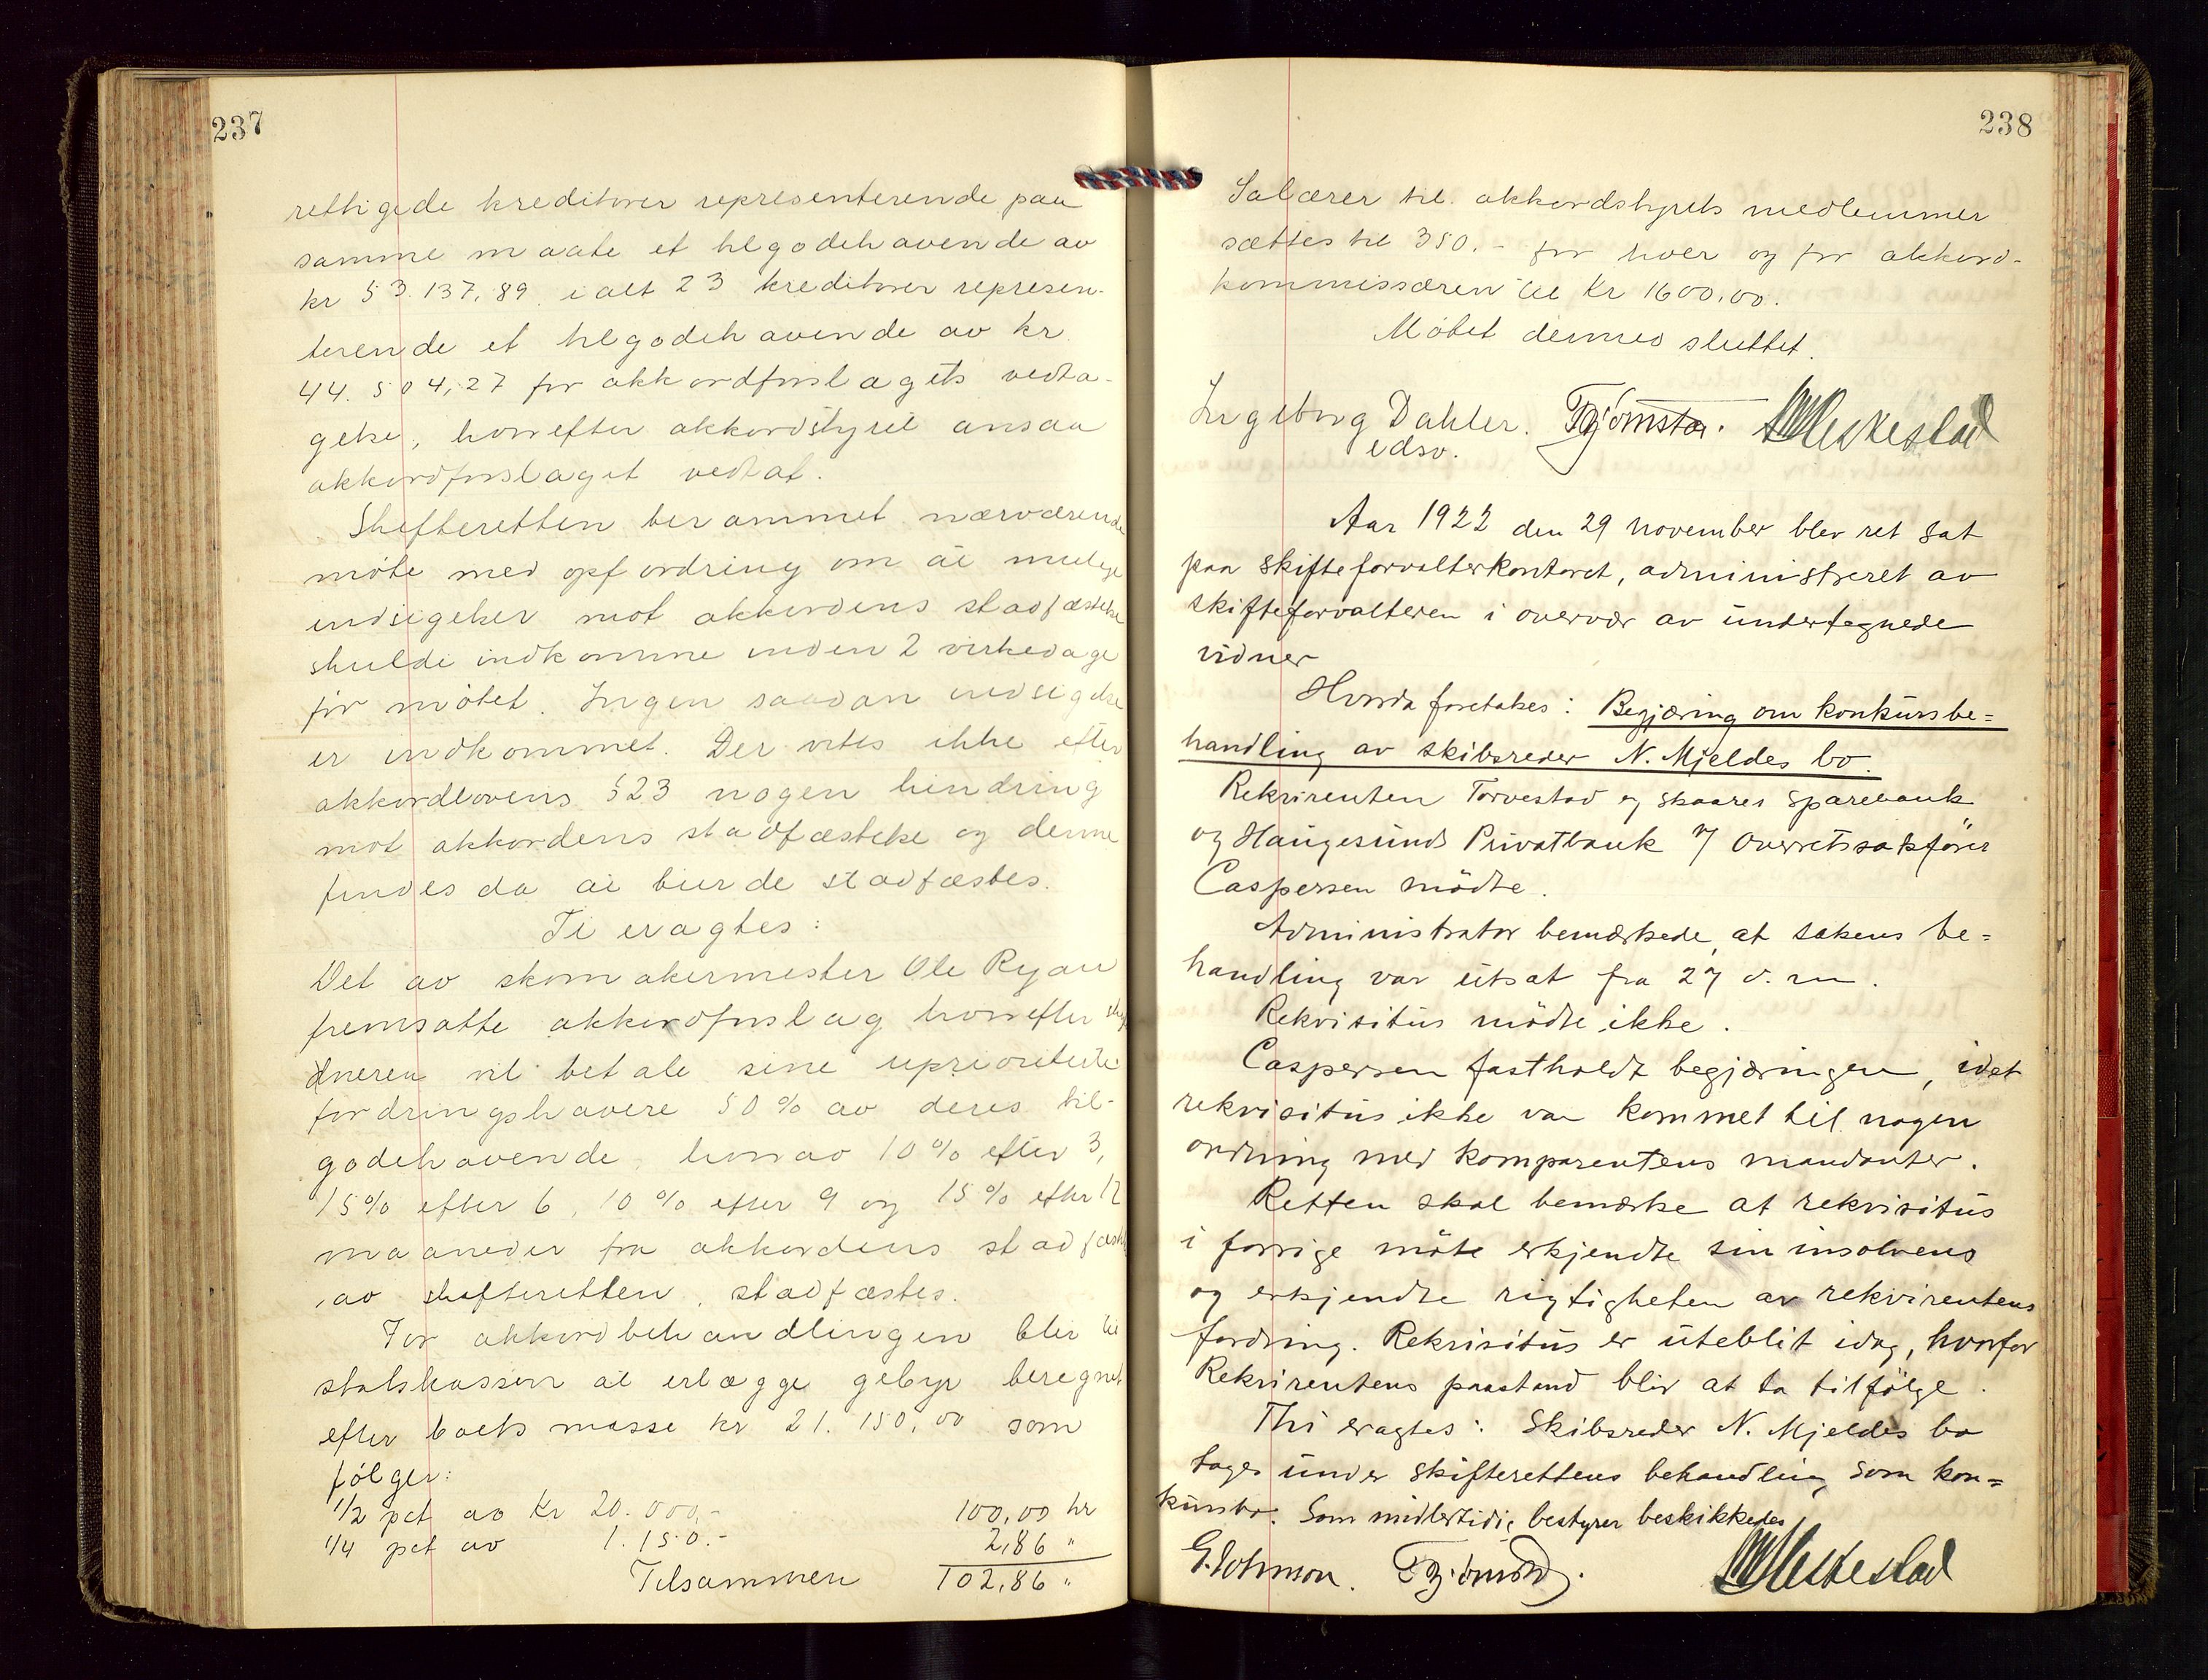 237
rettigede kreditorer representerende paa
samme maate et tilgodehavende av
kr 53.137,89 ialt 23 kreditorer represen-
terende et tilgodehavende av kr
44.504,27 for akkordforslagets vedta-
gelse, hvorefter akkordstyret ansaa
akkordforslaget vedtat.
Skifteretten berammet nærværende
møte med opfordring om at mulige
indsigelser mot akkordens stadfæstelse
skulde indkomme inden 2 virkedage
før møtet. Ingen saadan indsigelse
er indkommet. Der vites ikke efter
akkordlovens §23 nogen hindring
mot akkordens stadfæstelse og denne
findes da at burde stadfæstes.
Ti eragtes:
Det av skomakermester Ole Ryan
fremsatte akkordforslag hvorefter skyl
dneren vil betale sine uprioriterte
fordringshavere 50% av deres til-
godehavende, hvorav 10% efter 3,
15% efter 6, 10% efter 9 og 15% efter 12
maaneder fra akkordens stadfæstelse
av skifteretten, stadfæstes.
For akkordbehandlingen blir til
statskassen at erlægge gebyr beregnet
efter boets masse kr 21.150,00 som
følger:
1/2 pct av Kr 20.000,- 100,00 kr
1/4 pct av 1.150.- 2,86 "
Tilsammen 102,86 "
238
Salærer til akkordstyrets medlemmer
sættes til 350.- for hver og for akkord-
kommissæren til Kr 1600,00.
Møtet dermed sluttet.
Ingeborg Dahler.
edsv.
Aar 1922 den 29 november blev ret sat
paa skifteforvalterkontoret, administreret av
skifteforvalteren i overvær av undertegnede
vidner
Hvorda foretokes: Begjæring om konkursbe=
handling av skibsreder N. Mjeldes bo.
Rekvirenten Torvestad og Skaares Sparebank
og Haugesunds Privatbank v/ Overretssakfører
Caspersen mödte.
Administrator bemærkede, at sakens be=
handling var utsat fra 27 d. m.
Rekvisitus mödte ikke.
Caspersen fastholdt begjæringen, idet
rekvisitus ikke var kommet til nogen
ordning med komparentens mandanter.
Retten skal bemærke at rekvisitus
i forrige möte erkjendte sin insolvens
og erkjendte rigtigheten av rekvirentens
fordring. Rekvisitus er uteblit idag, hvorfor
Rekvirentens paastand blir at ta tilfölge.
Thi eragtes: Skibsreder N. Mjeldes bo
tages under skifterettens behandling som kon=
kursbo. Som midlertidig bestyrer beskikkedes